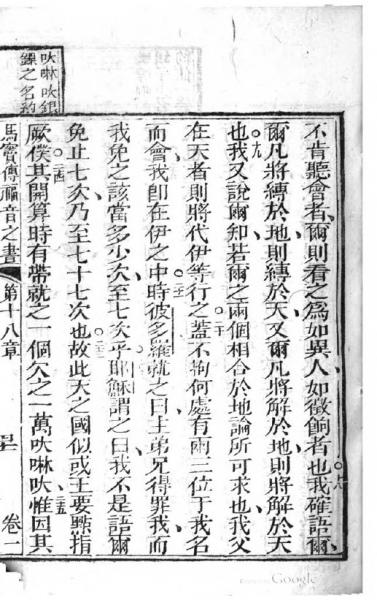 不肯聽會者爾則看之為如異人如徵餉者也我確語爾
爾凡將縛於地則縛於天又爾凡將解於地則解於天
也我又說爾知若爾之兩個相合於地論所可求也我父
在天者則將代伊等行之蓋不拘何處有兩三位于我名
而會我即在伊之中時彼多羅就之曰主弟兄得罪我而
我免之該當多少次至七次乎耶穌謂之曰我不是語爾
免止七次乃至七十七次也故此天之國似或王要點指
厥僕其開算時有帶就之一個欠之一萬呔啉呔惟因其
馬竇傳福音之書
第十八章
卷一
呔啉呔銀
錢之名約
Google